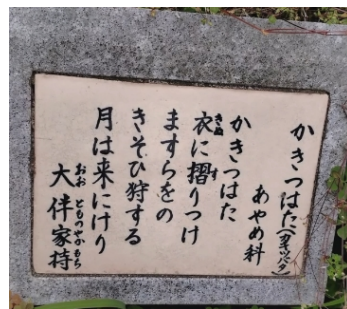 かきつはた(カキツバタ)
あやめ科
かきつはた
衣に摺りつけ
ますらをの
きそひ狩する
月は来にけり
大伴家持